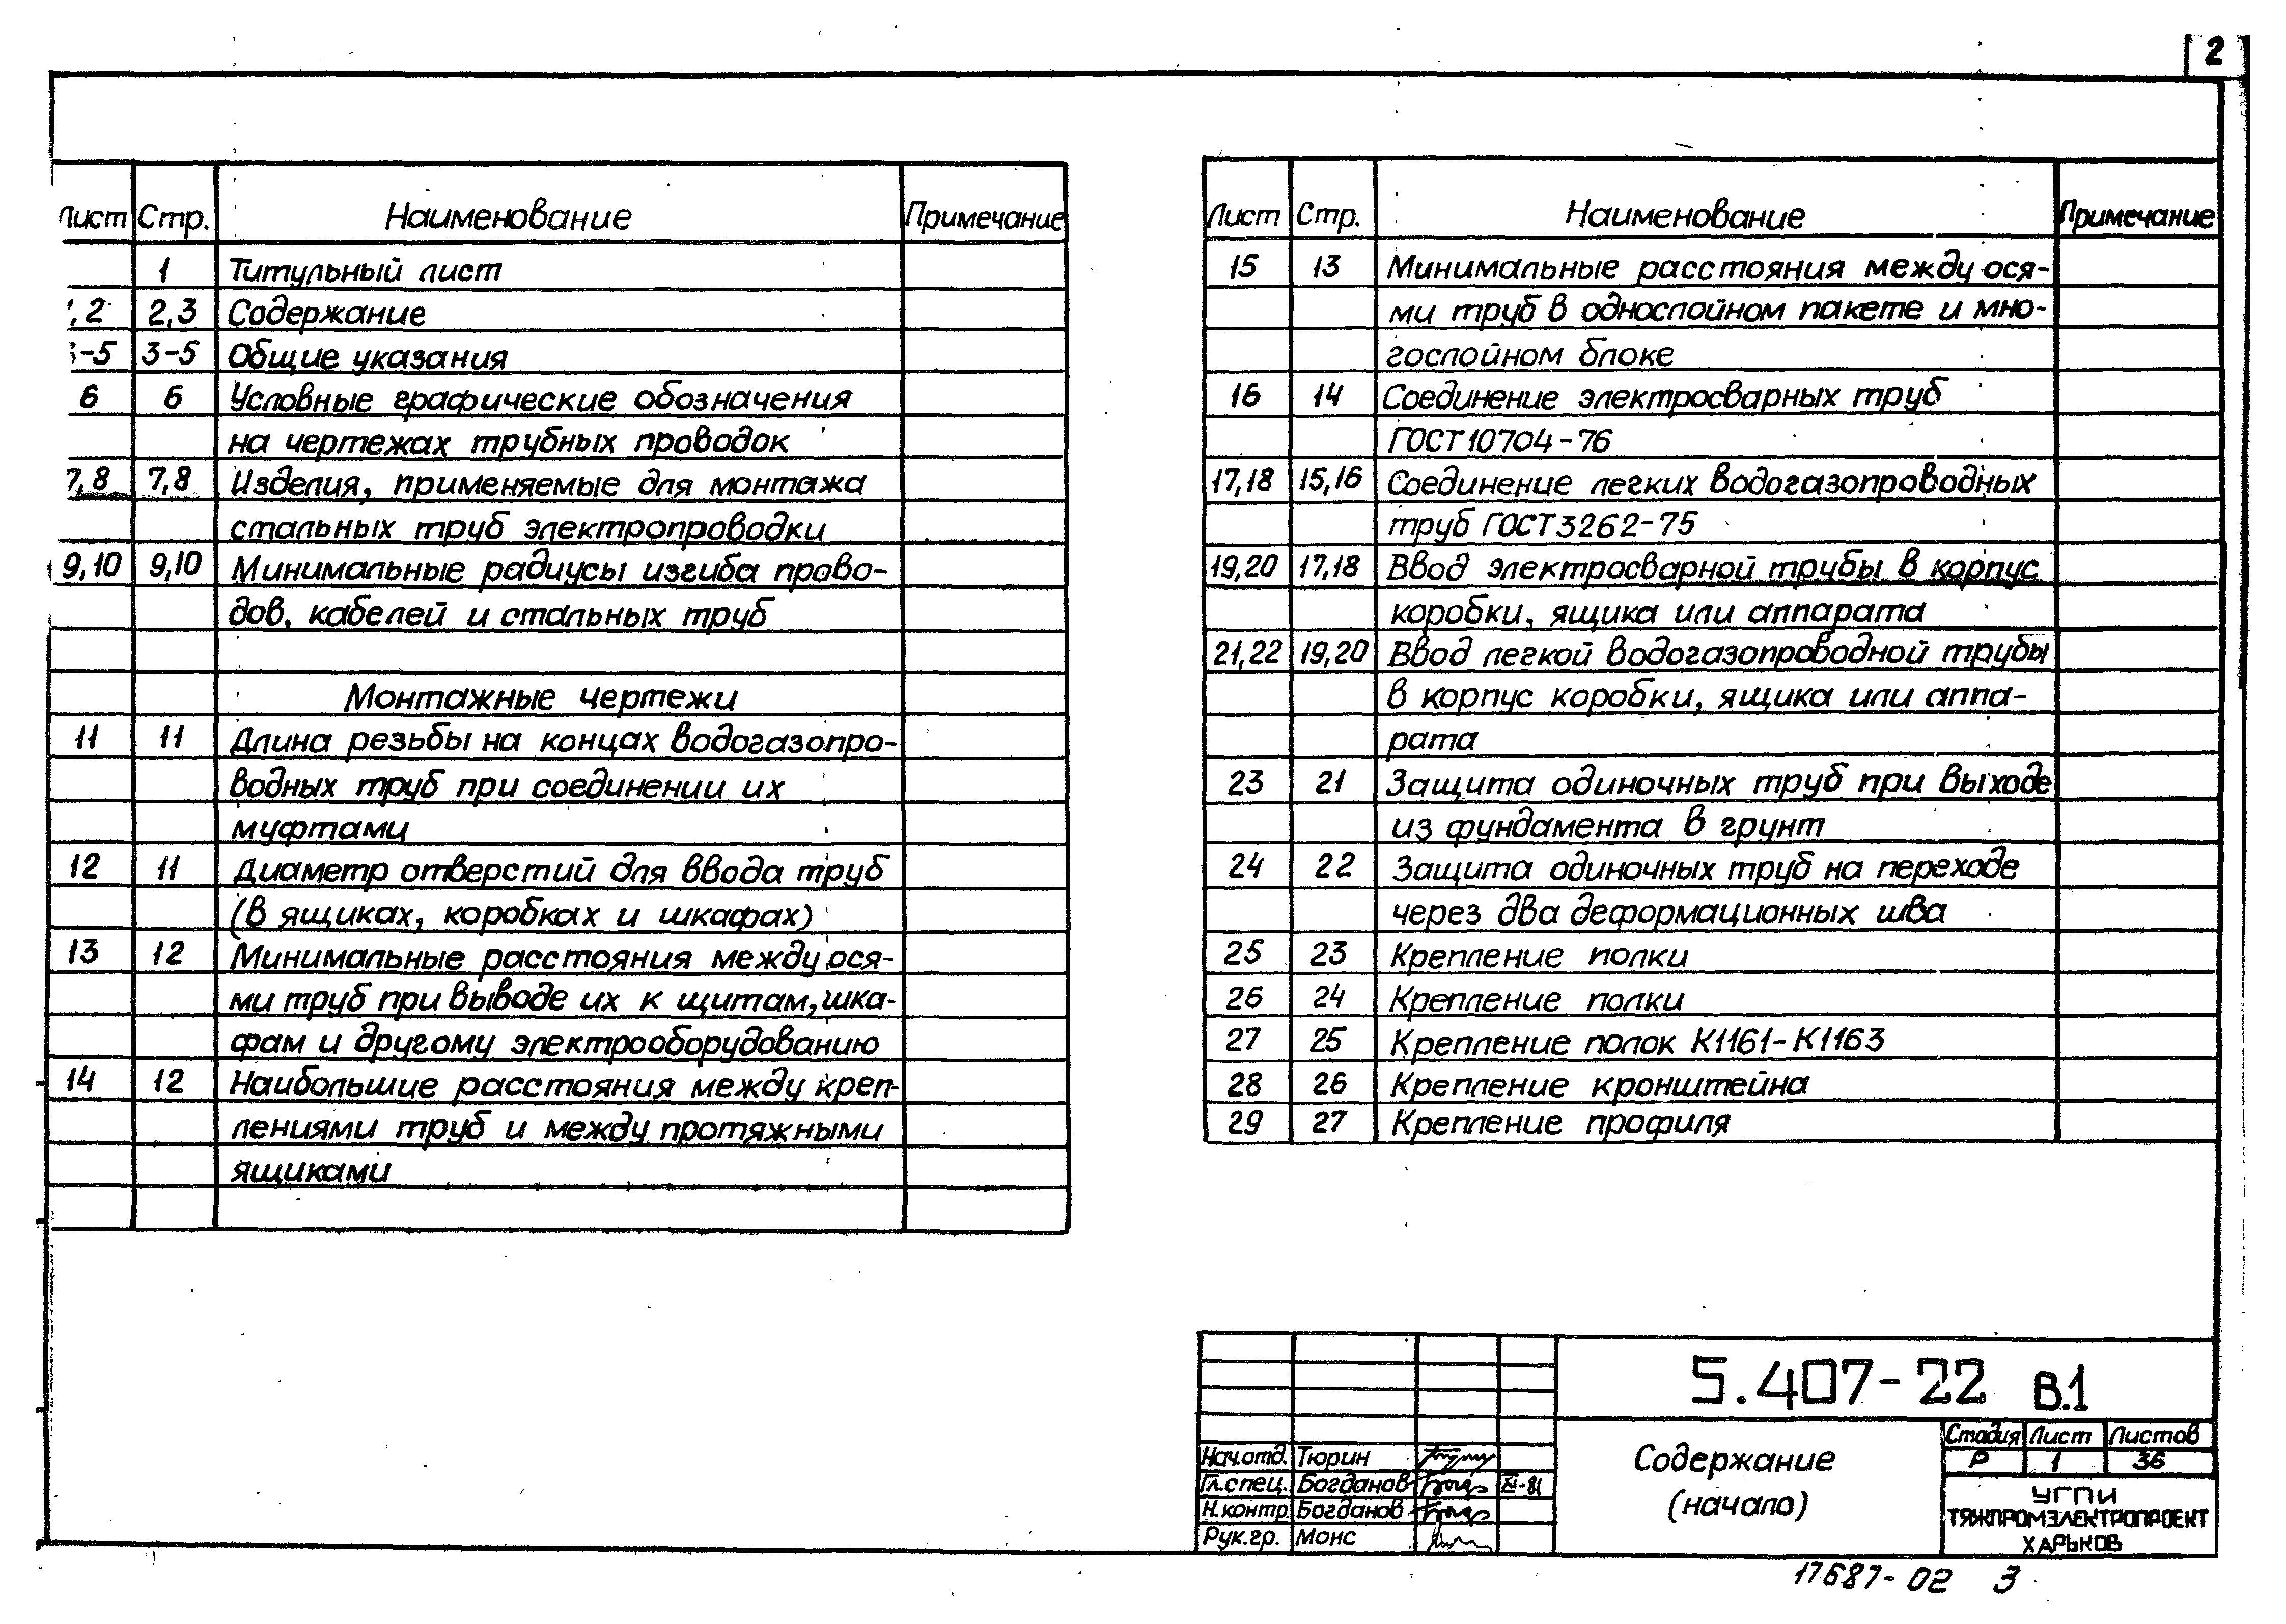 2
Лист Стр. Наименование Примечание
1 Титульный лист
, 2 2,3 Содержание
-5 3-5 Общие указания
6 6 Условные графические обозначения
на чертежах трубных проводок
7,8 7,8 Изделия, применяемые для монтажа
стальных труб электропроводки
9,10 9,10 Минимальные радиусы изгиба прово-
дов, кабелей и стальных труб
Монтажные чертежи
11 11 Длина резьбы на концах водогазопро-
водных труб при соединении их
муфтами
12 11 Диаметр отверстий для ввода труб
(в ящиках, коробках и шкафах)
13 12 Минимальные расстояния между ося-
ми труб при выводе их к щитам, шка-
фам и другому электрооборудованию
14 12 Наибольшие расстояния между креп-
лениями труб и между протяжными
ящиками
Лист Стр. Наименование Примечание
15 13 Минимальные расстояния между ося-
ми труб в однослойном пакете и мно-
гослойном блоке
16 14 Соединение электросварных труб
ГОСТ 10704-76
17,18 15,16 Соединение легких водогазопроводных
труб ГОСТ 3262-75
19,20 17,18 Ввод электросварной трубы в корпус
коробки, ящика или аппарата
21,22 19,20 Ввод легкой водогазопроводной трубы
в корпус коробки, ящика или аппа-
рата
23 21 Защита одиночных труб при выходе
из фундамента в грунт
24 22 Защита одиночных труб на переходе
через два деформационных шва
25 23 Крепление полки
26 24 Крепление полки
27 25 Крепление полок К1161-К1163
28 26 Крепление кронштейна
29 27 Крепление профиля
5.407-22 В.1
Нач.отд. Тюрин
Гл.спец. Богданов XI-81
Н.контр. Богданов
Рук.гр. Монс
Содержание
(начало)
Стадия Лист Листов
Р 1 36
УГПИ
ТЯЖПРОМЭЛЕКТРОПРОЕКТ
ХАРЬКОВ
17687-02 3